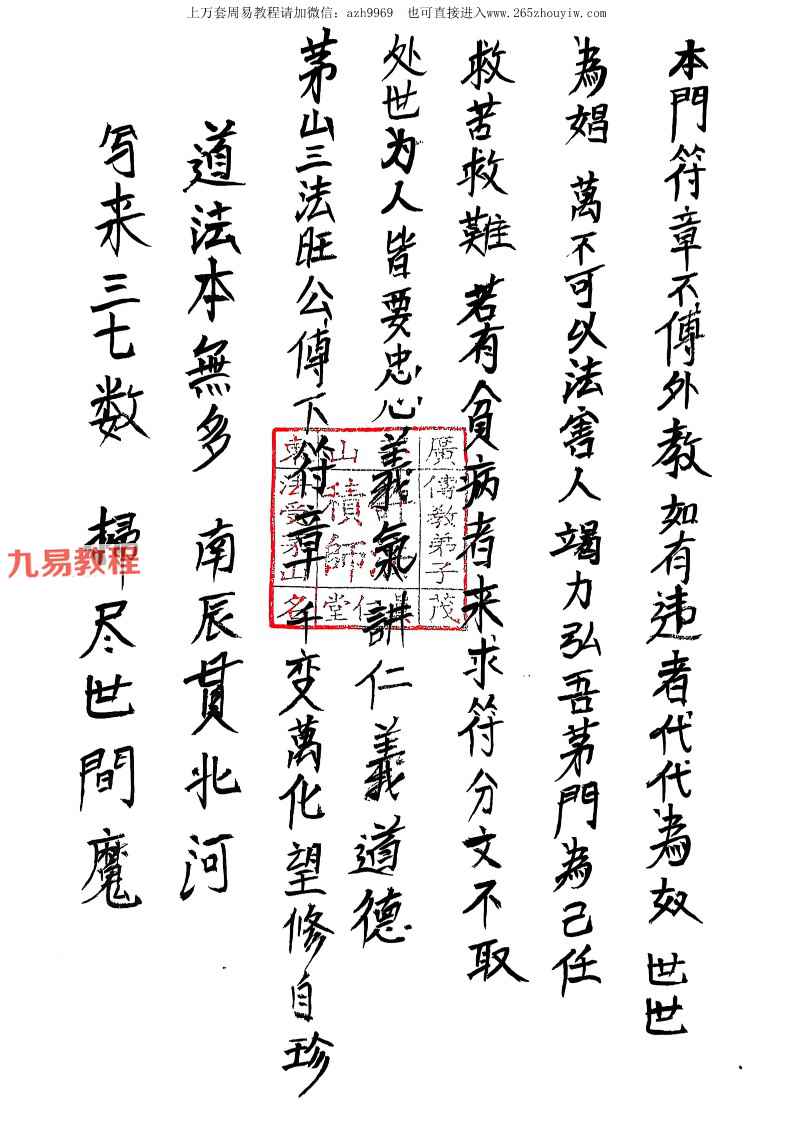 上万套周易教程请加微信：azh9969　也可直接进入www.265zhouyiw.com
本門符章不傳外教如有违者代代為奴世世
為娼萬不可以法害人竭力弘吾茅門為己任
救苦救難若有貧病者来求符分文不取
处世为人皆要忠心義氣講仁義道德
茅山三法旺公傳下符章千变萬化望修自珍
道法本無多南辰貫北河
写来三七数掃尽世间魔
廣傳教弟子茂
山積師堂
九易教程